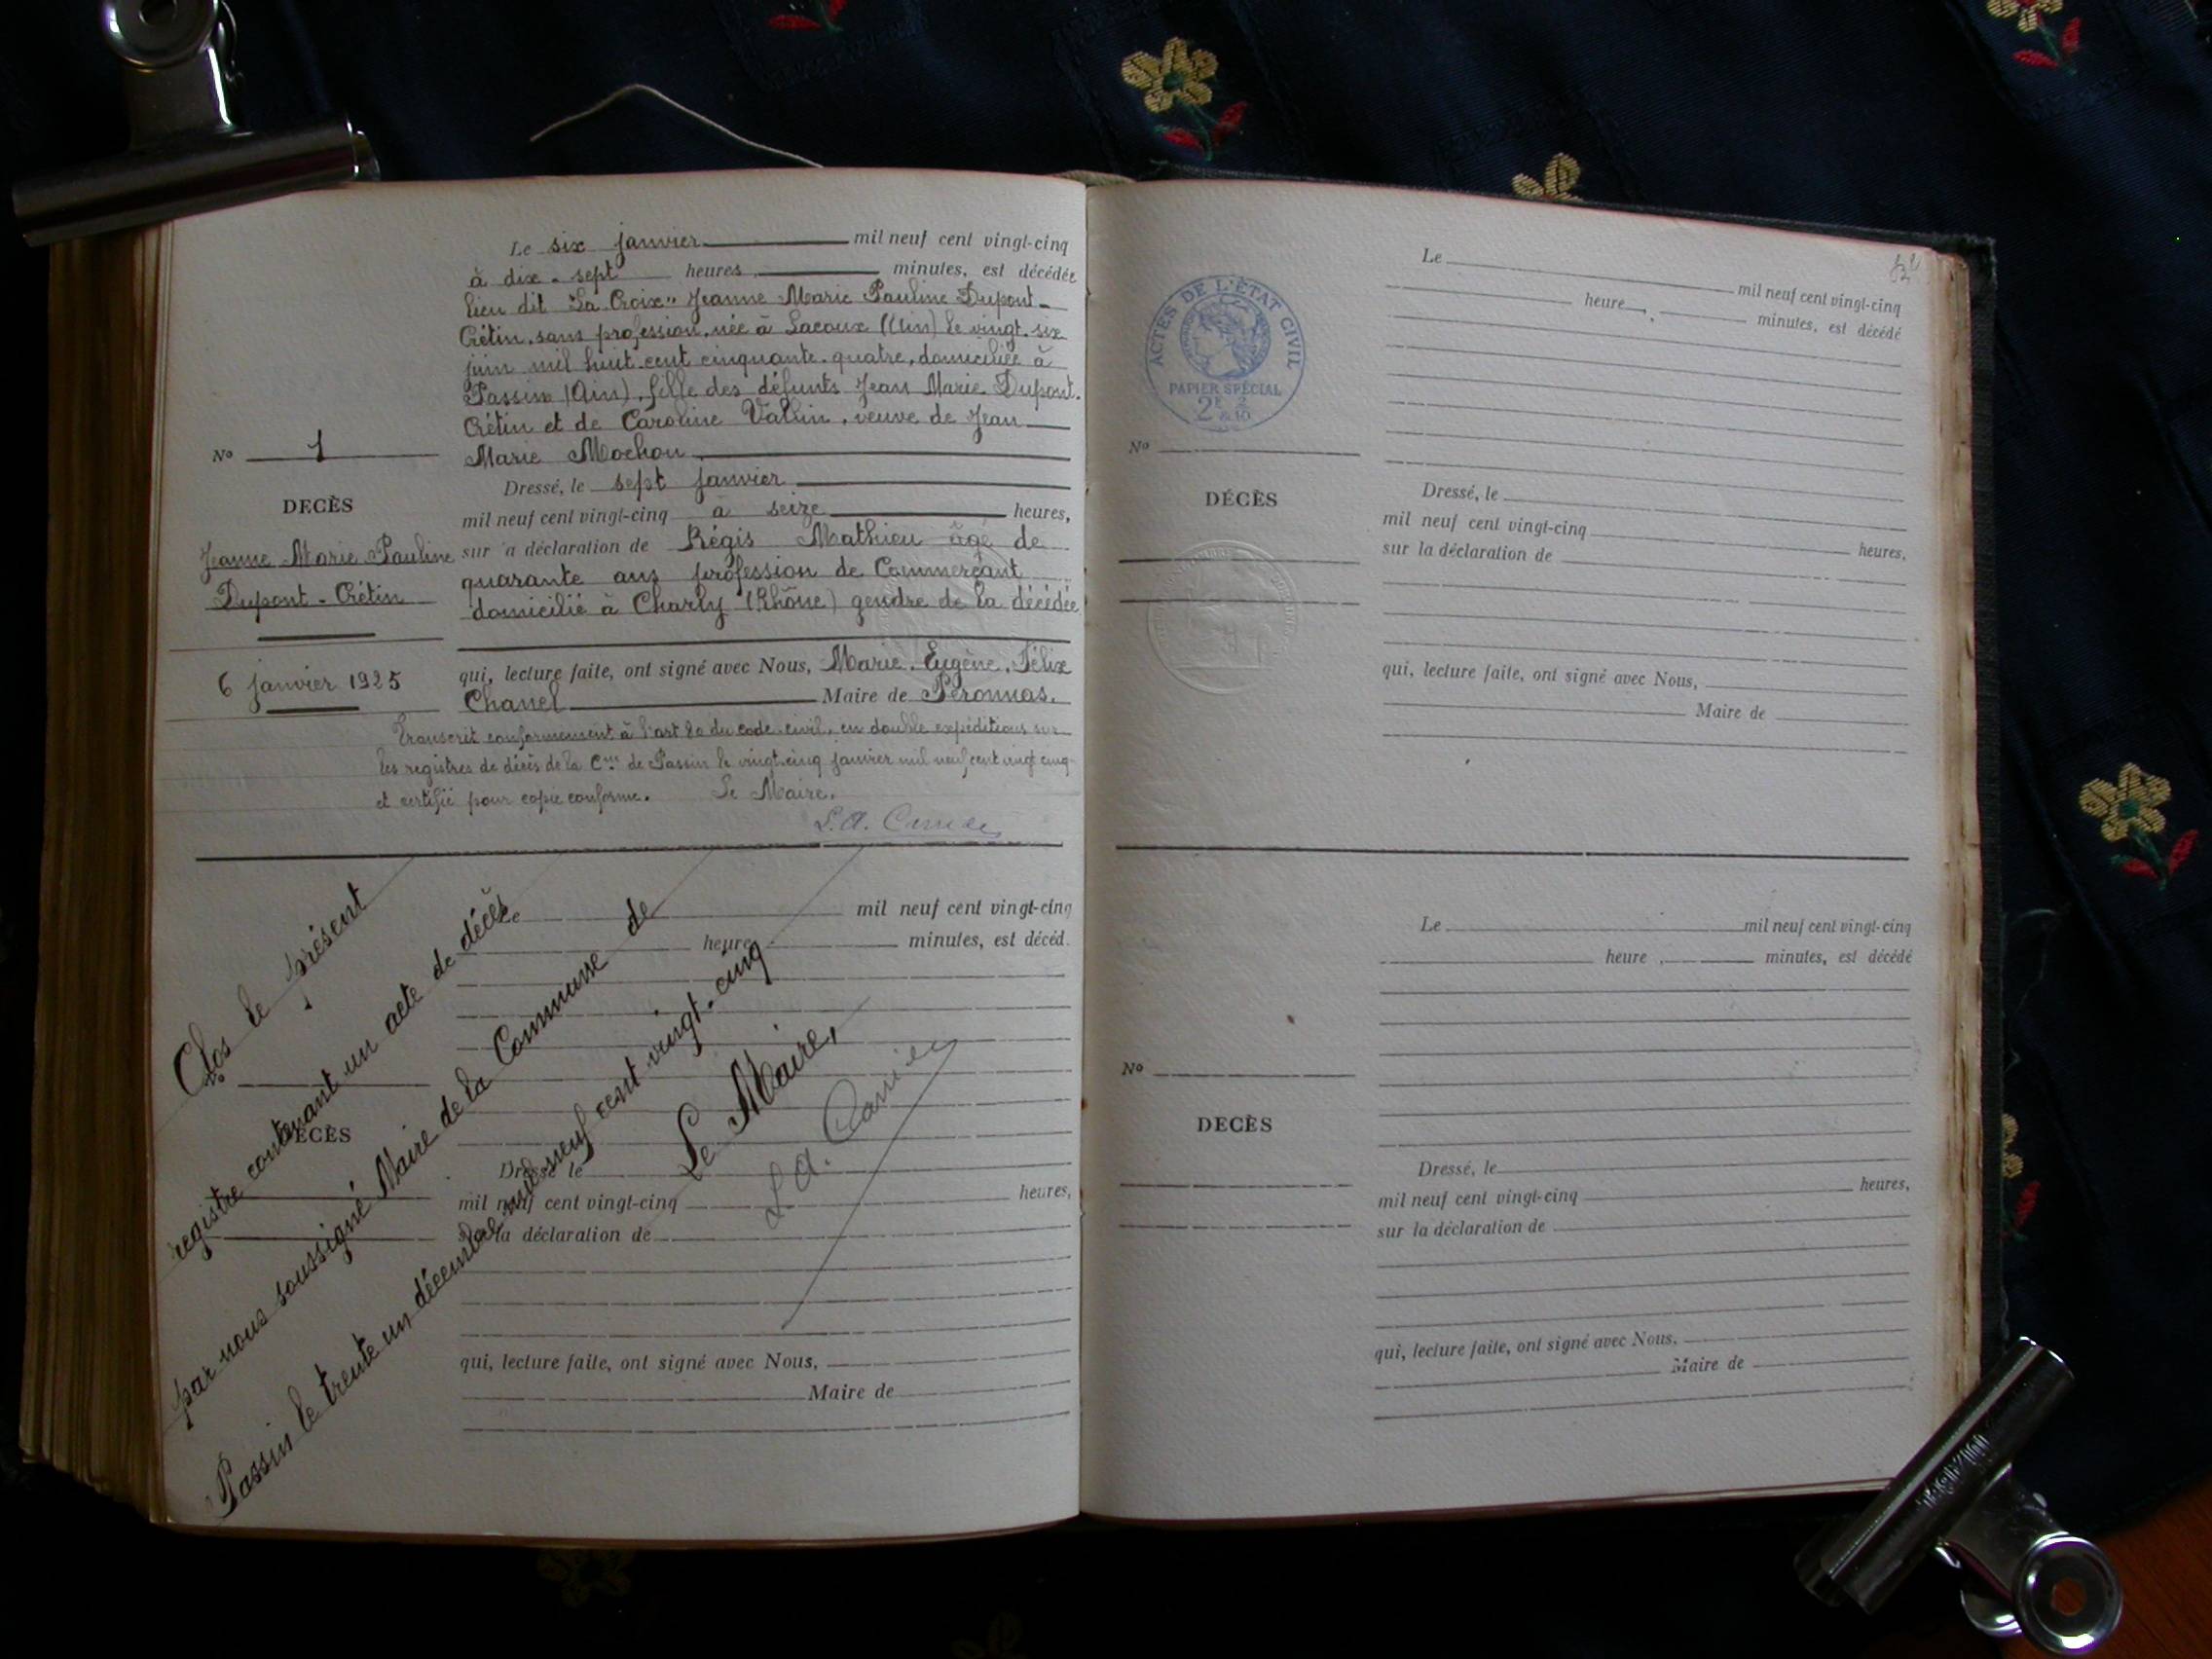 Le six janvier mil neuf cent vingt-cinq
à dix-sept heures, minutes, est décédée
lieu dit "La Croix" Jeanne Marie Pauline Dupont-
Crétin, sans profession, née à Lacoux (Ain) le vingt-six
juin mil huit cent cinquante-quatre, domiciliée à
Passin (Ain), fille des défunts Jean Marie Dupont-
Crétin et de Caroline Vallin, veuve de Jean
Marie Mochon
No 1
DECÈS
Jeanne Marie Pauline
Dupont-Crétin
6 janvier 1925
Dressé, le sept janvier
mil neuf cent vingt-cinq à seize heures,
sur a déclaration de Régis Mathieu âgé de
quarante ans profession de Commerçant
domicilié à Charly (Rhône) gendre de la décédée
qui, lecture faite, ont signé avec Nous, Marie, Eugène, Félix
Chanel Maire de Péronnas.
Transcrit conformément à l'art 80 du code civil, en double expéditions sur
les registres de décès de la Cne de Passin le vingt-cinq janvier mil neuf cent vingt cinq
et certifié pour copie conforme. Le Maire.
Le mil neuf cent vingt-cinq
heure minutes, est décéd
No
DECÈS
Dressé le
mil neuf cent vingt-cinq heures,
sur la déclaration de
qui, lecture faite, ont signé avec Nous,
Maire de
Clos le présent
registre contenant un acte de décès
par nous soussigné Maire de la Commune de
Passin le trente un décembre mil neuf cent vingt-cinq
Le Maire,
ACTES DE L'ÉTAT CIVIL
PAPIER SPÉCIAL
2F 2/& 10
Le mil neuf cent vingt-cinq
heure , minutes, est décédé
No
DÉCÈS
Dressé, le
mil neuf cent vingt-cinq heures,
sur la déclaration de
qui, lecture faite, ont signé avec Nous,
Maire de
Le mil neuf cent vingt-cinq
heure , minutes, est décédé
No
DECÈS
Dressé, le
mil neuf cent vingt-cinq heures,
sur la déclaration de
qui, lecture faite, ont signé avec Nous,
Maire de